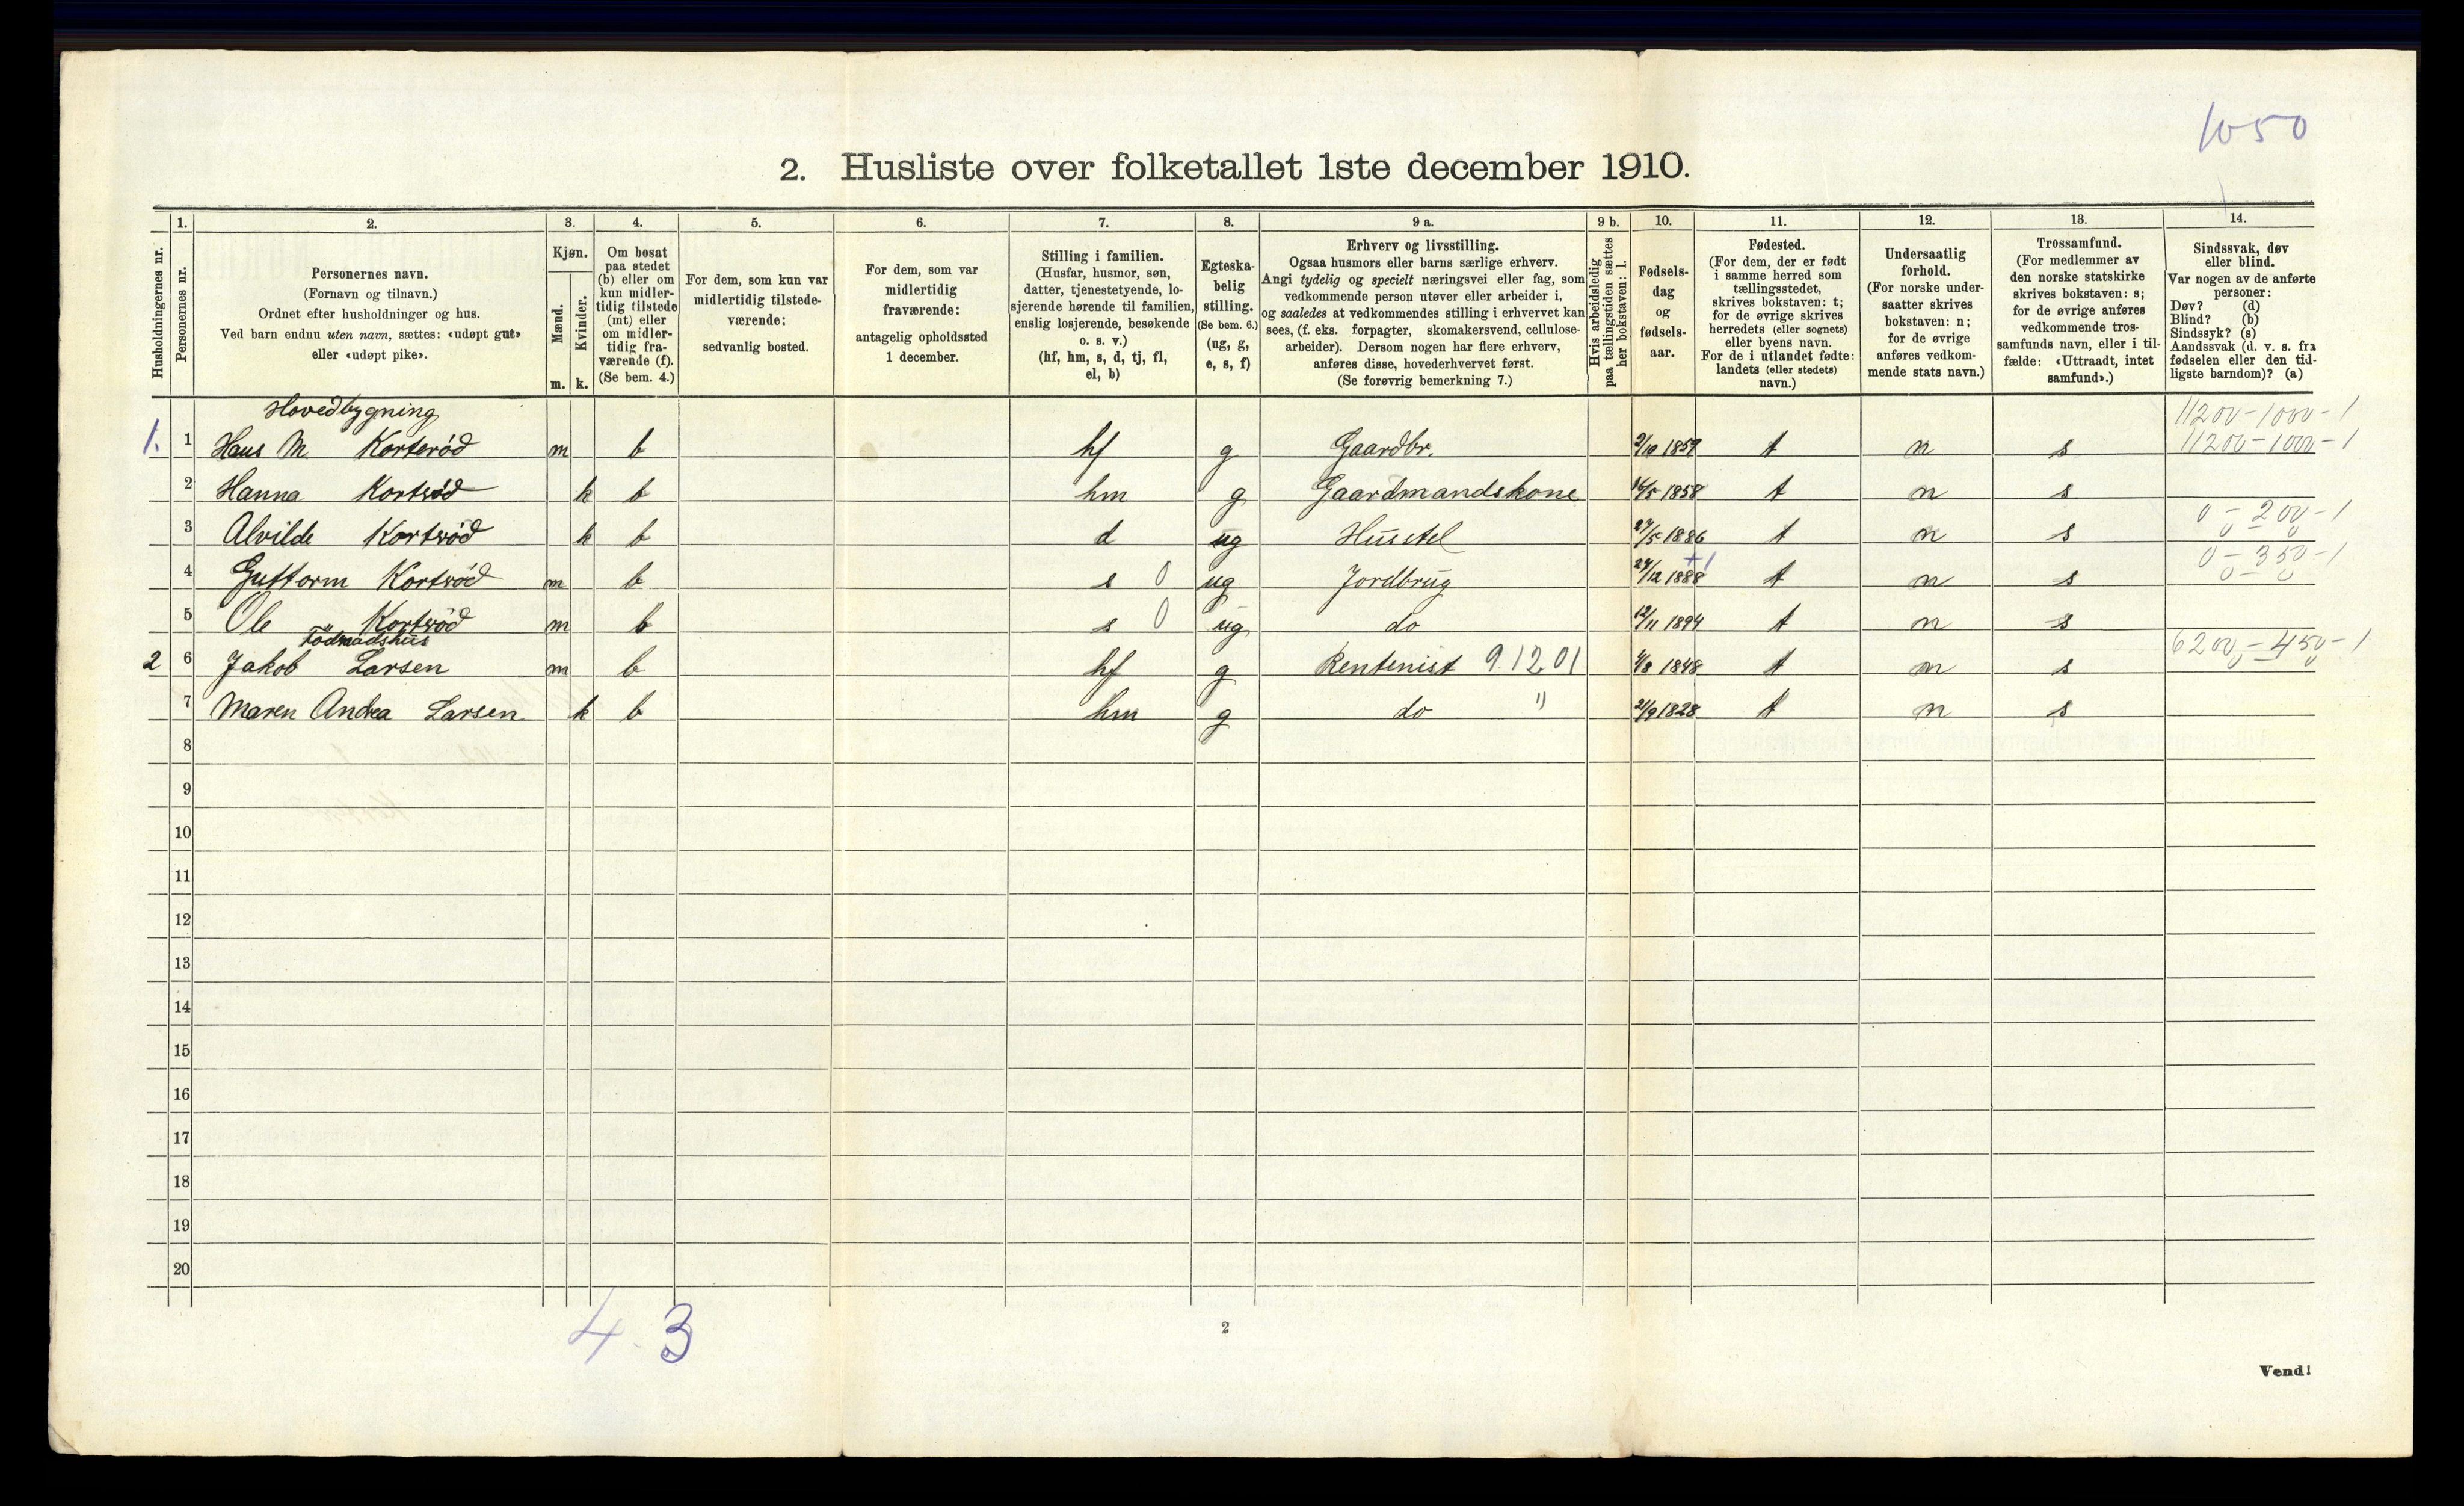 1050
2. Husliste over folketallet 1ste december 1910.
Husholdningernes nr.
1. Personernes nr.
2. Personernes navn. (Fornavn og tilnavn.) Ordnet efter husholdninger og hus. Ved barn endnu uten navn, sættes: «udøpt gut» eller «udøpt pike».
3. Kjøn. Mænd. m. Kvinder. k.
4. Om bosat paa stedet (b) eller om kun midler-tidig tilstede (mt) eller om midler-tidig fra-værende (f). (Se bem. 4.)
5. For dem, som kun var midlertidig tilstede-værende: sedvanlig bosted.
6. For dem, som var midlertidig fraværende: antagelig opholdssted 1 december.
7. Stilling i familien. (Husfar, husmor, søn, datter, tjenestetyende, lo-sjerende hørende til familien, enslig losjerende, besøkende o. s. v.) (hf, hm, s, d, tj, fl, el, b)
8. Egteska-belig stilling. (Se bem. 6.) (ug, g, e, s, f)
9 a. Erhverv og livsstilling. Ogsaa husmors eller barns særlige erhverv. Angi tydelig og specielt næringsvei eller fag, som vedkommende person utøver eller arbeider i, og saaledes at vedkommendes stilling i erhvervet kan sees, (f. eks. forpagter, skomakersvend, cellulose-arbeider). Dersom nogen har flere erhverv, anføres disse, hovederhvervet først. (Se forøvrig bemerkning 7.)
9 b. Hvis arbeidsledig paa tællingstiden sættes her bokstaven: l.
10. Fødsels-dag og fødsels-aar.
11. Fødested. (For dem, der er født i samme herred som tællingsstedet, skrives bokstaven: t; for de øvrige skrives herredets (eller sognets) eller byens navn. For de i utlandet fødte: landets (eller stedets) navn.)
12. Undersaatlig forhold. (For norske under-saatter skrives bokstaven: n; for de øvrige anføres vedkom-mende stats navn.)
13. Trossamfund. (For medlemmer av den norske statskirke skrives bokstaven: s; for de øvrige anføres vedkommende tros-samfunds navn, eller i til-fælde: «Uttraadt, intet samfund».)
14. Sindssvak, døv eller blind. Var nogen av de anførte personer: Døv? (d) Blind? (b) Sindssyk? (s) Aandssvak (d. v. s. fra fødselen eller den tid-ligste barndom)? (a)
Hovedbygning 11200-1000-1
1. 1 Hans M Korterød m b hf g Gaardbr. 2/10 1859 t n s 11200-1000-1
2 Hanna Korterød k b hm g Gaardmandskone 16/5 1858 t n s
0-200-1
3 Alvilde Korterød k b d ug Husstel 27/5 1886 t n s 0-0
+1 0-350-1
4 Guttorm Korterød m b s 0 ug Jordbrug 24/12 1888 t n s 0-0
5 Ole Korterød m b s 0 ug do 12/11 1894 t n s
Födraadshus
2 6 Jakob Larsen m b hf g Rentenist 9.12.01 4/8 1848 t n s 6200-450-1
7 Maren Andrea Larsen k b hm g do " 21/9 1828 t n s
8
9
10
11
12
13
14
15
16
17
18
19
20
4. 3
2
Vend!